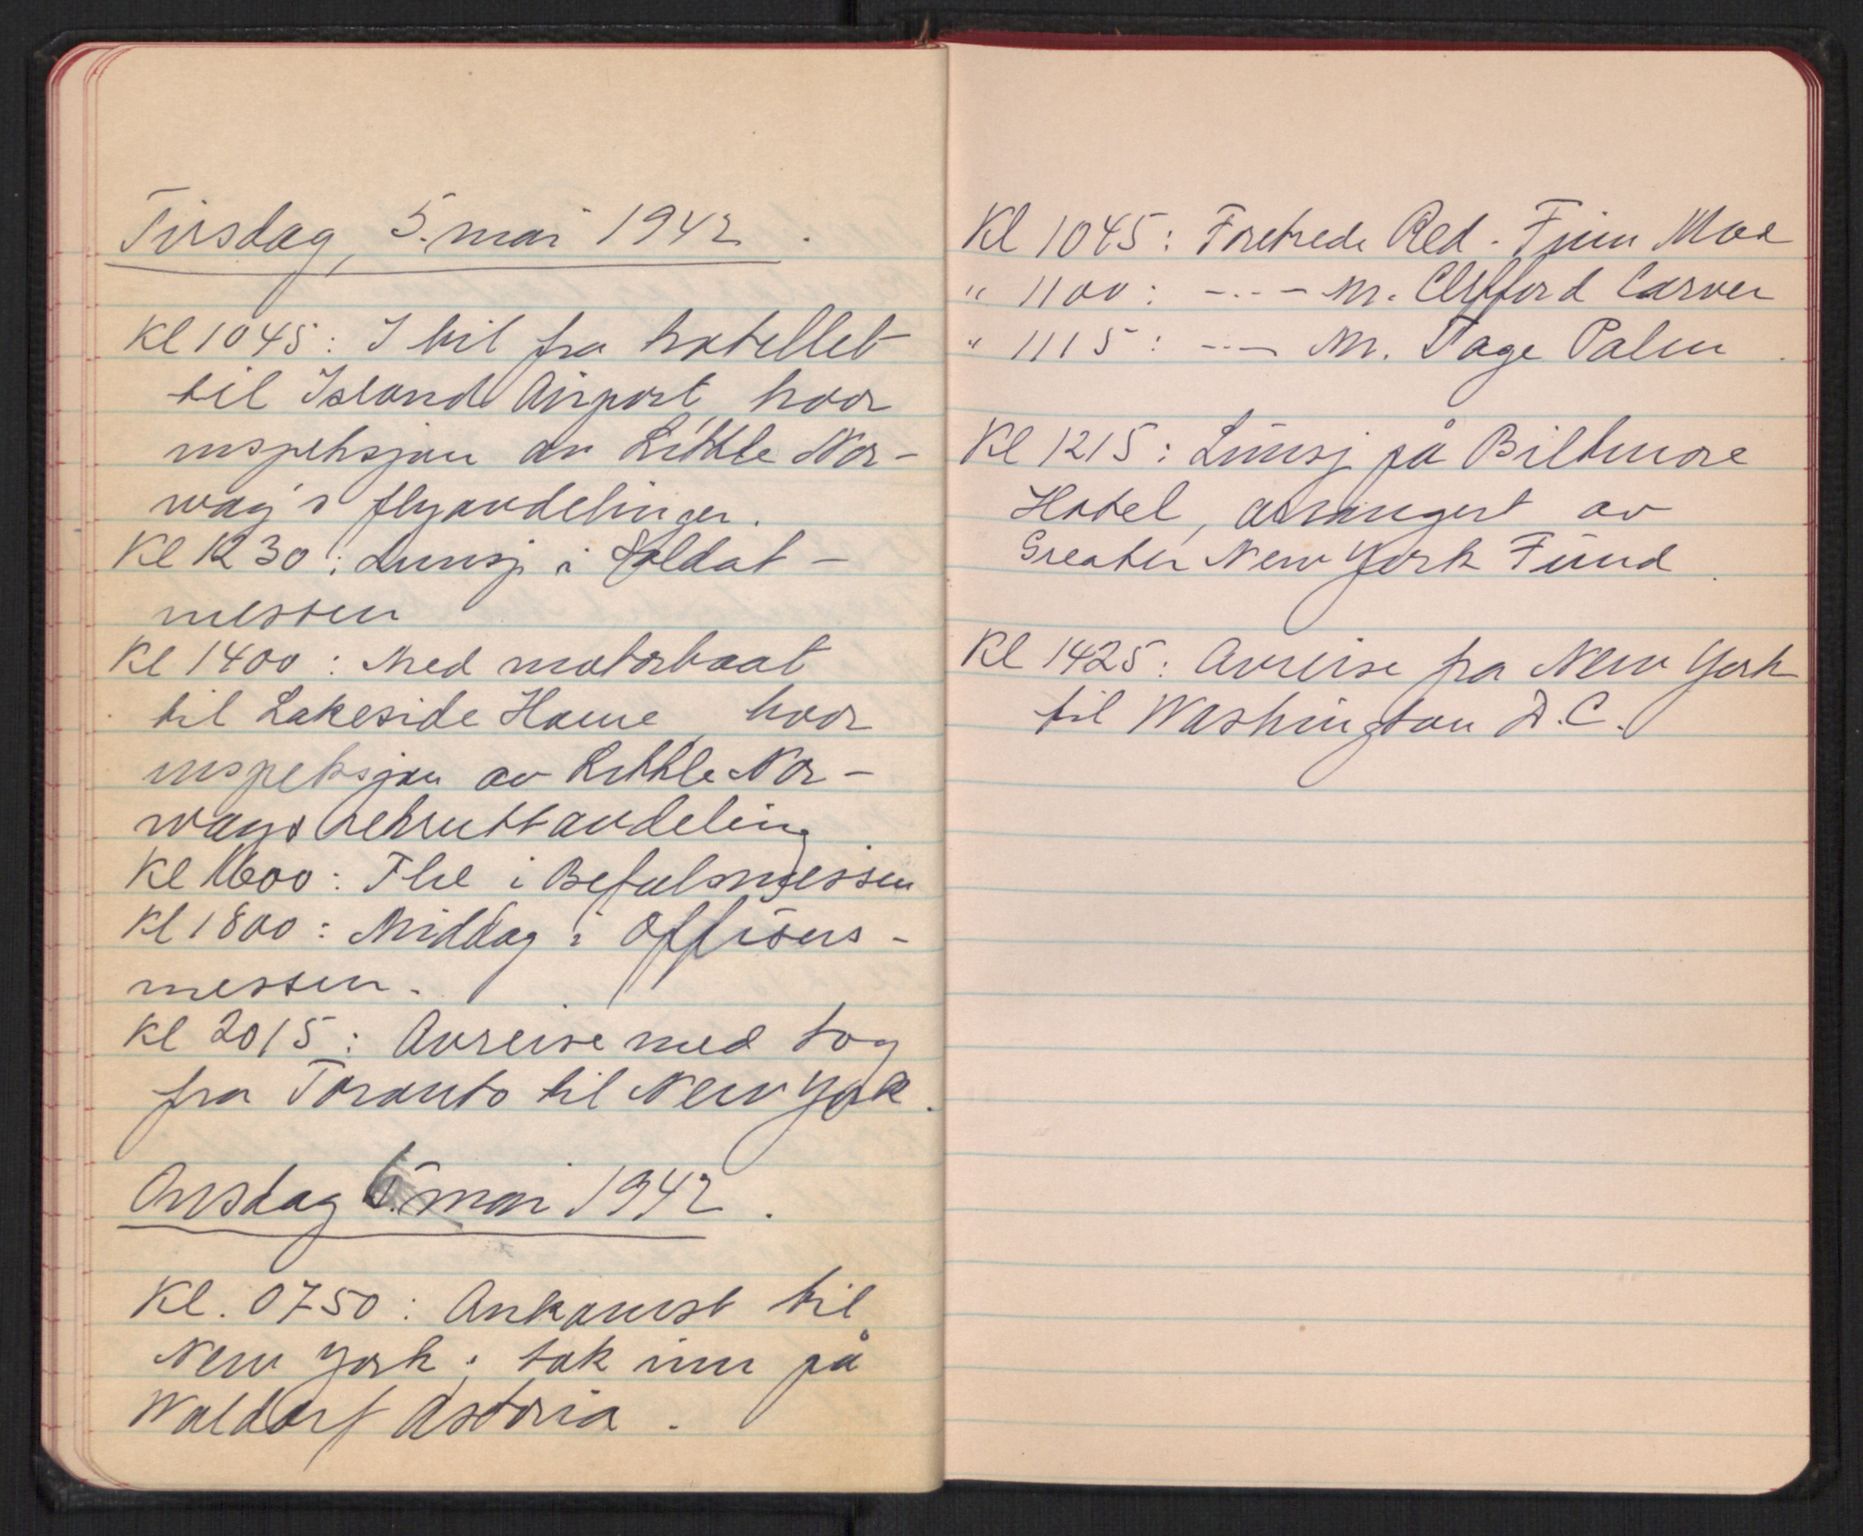 Tirsdag, 5. mai 1942.
Kl 1045: I bil fra hotellet
til Island Airport, hvor
inspeksjon av Little Nor-
way's flyavdelinger.
Kl 1230: Lunsj i Soldat-
messen
Kl 1400: Med motorbaat
til Lakeside Home, hvor
inspeksjon av Little Nor-
ways rekruttavdeling
Kl 1600: The i Befalsmessen
Kl 1800: Middag i Offisers-
messen.
Kl 2015: Avreise med tog
fra Toronto til New York.
Onsdag 6. mai 1942.
Kl. 0750: Ankomst til
New York; tok inn på
Waldorf Astoria.
Kl 1045: Foretrede Red. Finn Moe
" 1100: -..- M. Clifford Carver
" 1115: -..- M. Tage Palm.
Kl 1215: Lunsj på Biltmore
Hotel, arrangert av
Greater New York Fund.
Kl 1425: Avreise fra New York
til Washington D.C.